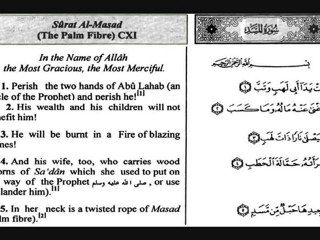 Sûrat Al-Masad
(The Palm Fibre) CXI
In the Name of Allâh
the Most Gracious, the Most Merciful.
1. Perish the two hands of Abû Lahab (an
cle of the Prophet) and perish he![1]
2. His wealth and his children will not
nefit him!
3. He will be burnt in a Fire of blazing
mes!
4. And his wife, too, who carries wood
orns of Sa'dân which she used to put on
way of the Prophet صلى الله عليه وسلم, or use
lander him).[1]
5. In her neck is a twisted rope of Masad
lm fibre).[2]
سُورَةُ المَسَدِ
بِسْمِ اللَّهِ الرَّحْمَٰنِ الرَّحِيمِ
يَدَآ أَبِى لَهَبٍ وَتَبَّ ١
غْنَىٰ عَنْهُ مَالُهُۥ وَمَا كَسَبَ ٢
صْلَىٰ نَارًا ذَاتَ لَهَبٍ ٣
مْرَأَتُهُۥ حَمَّالَةَ ٱلْحَطَبِ ٤
يدِهَا حَبْلٌ مِّن مَّسَدٍ ٥